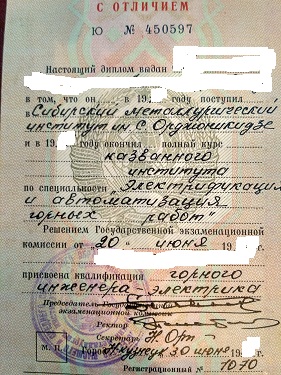 С ОТЛИЧИЕМ
Ю № 450597
Настоящий диплом выдан
в том, что он в 19 году поступил
в Сибирский металлургический
институт им. С. Орджоникидзе
и в 19 году окончил полный курс
названного
института
по специальности „Электрификация
и автоматизация
горных работ"
Решением Государственной экзаменационной
комиссии от "20" июня 19 г.
присвоена квалификация горного
инженера-электрика
Председатель Государственной
экзаменационной комиссии
Ректор
Секретарь
М. П. Город Н-кузнецк 30 июня 19 г.
Регистрационный № 7070